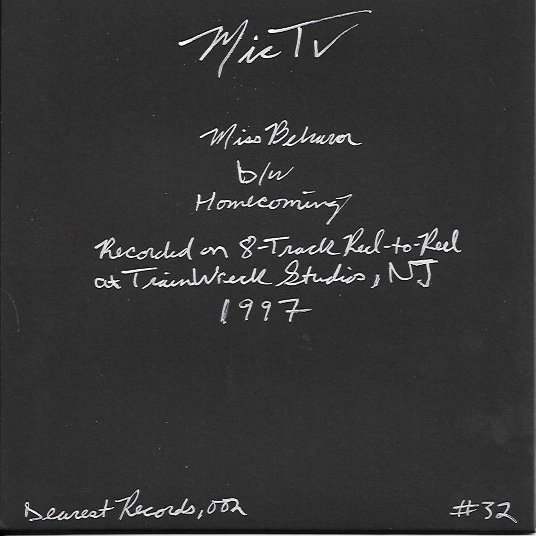 MicTV
Miss Behavor
b/w
Homecoming
Recorded on 8-Track Reel-to-Reel
at TrainWreck Studios, NJ
1997
Dearest Records, 002
#32